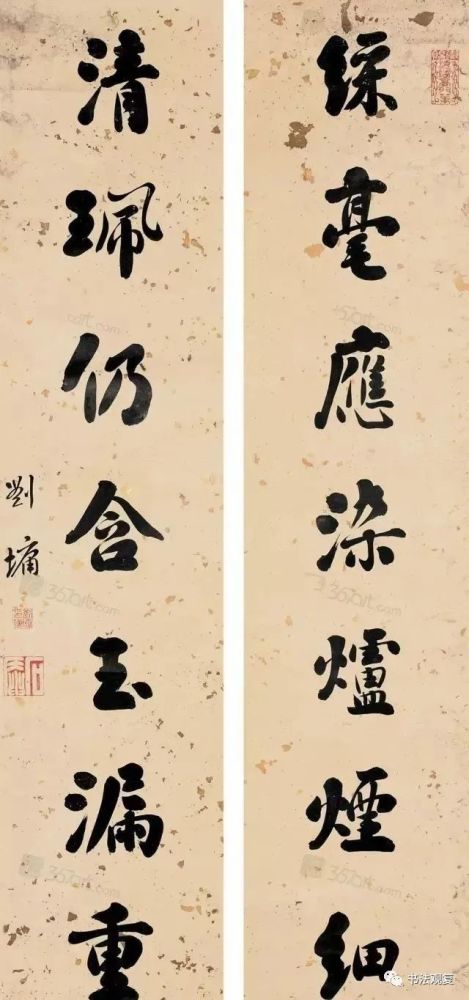 綵毫應染爐煙細
清珮仍含玉漏重
劉墉
书法观复